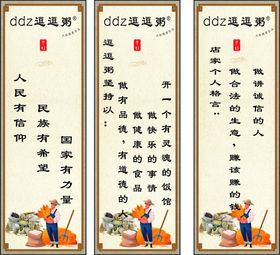 ddz逗逗粥®
人民有信仰
民族有希望
国家有力量
ddz逗逗粥®
逗逗粥坚持以：
做有品德，有道德的人
做健康的食品
做快乐的事情
开一个有灵魂的饭馆
ddz逗逗粥®
店家个人格言：
做合法的生意，赚该赚的钱
做讲诚信的人